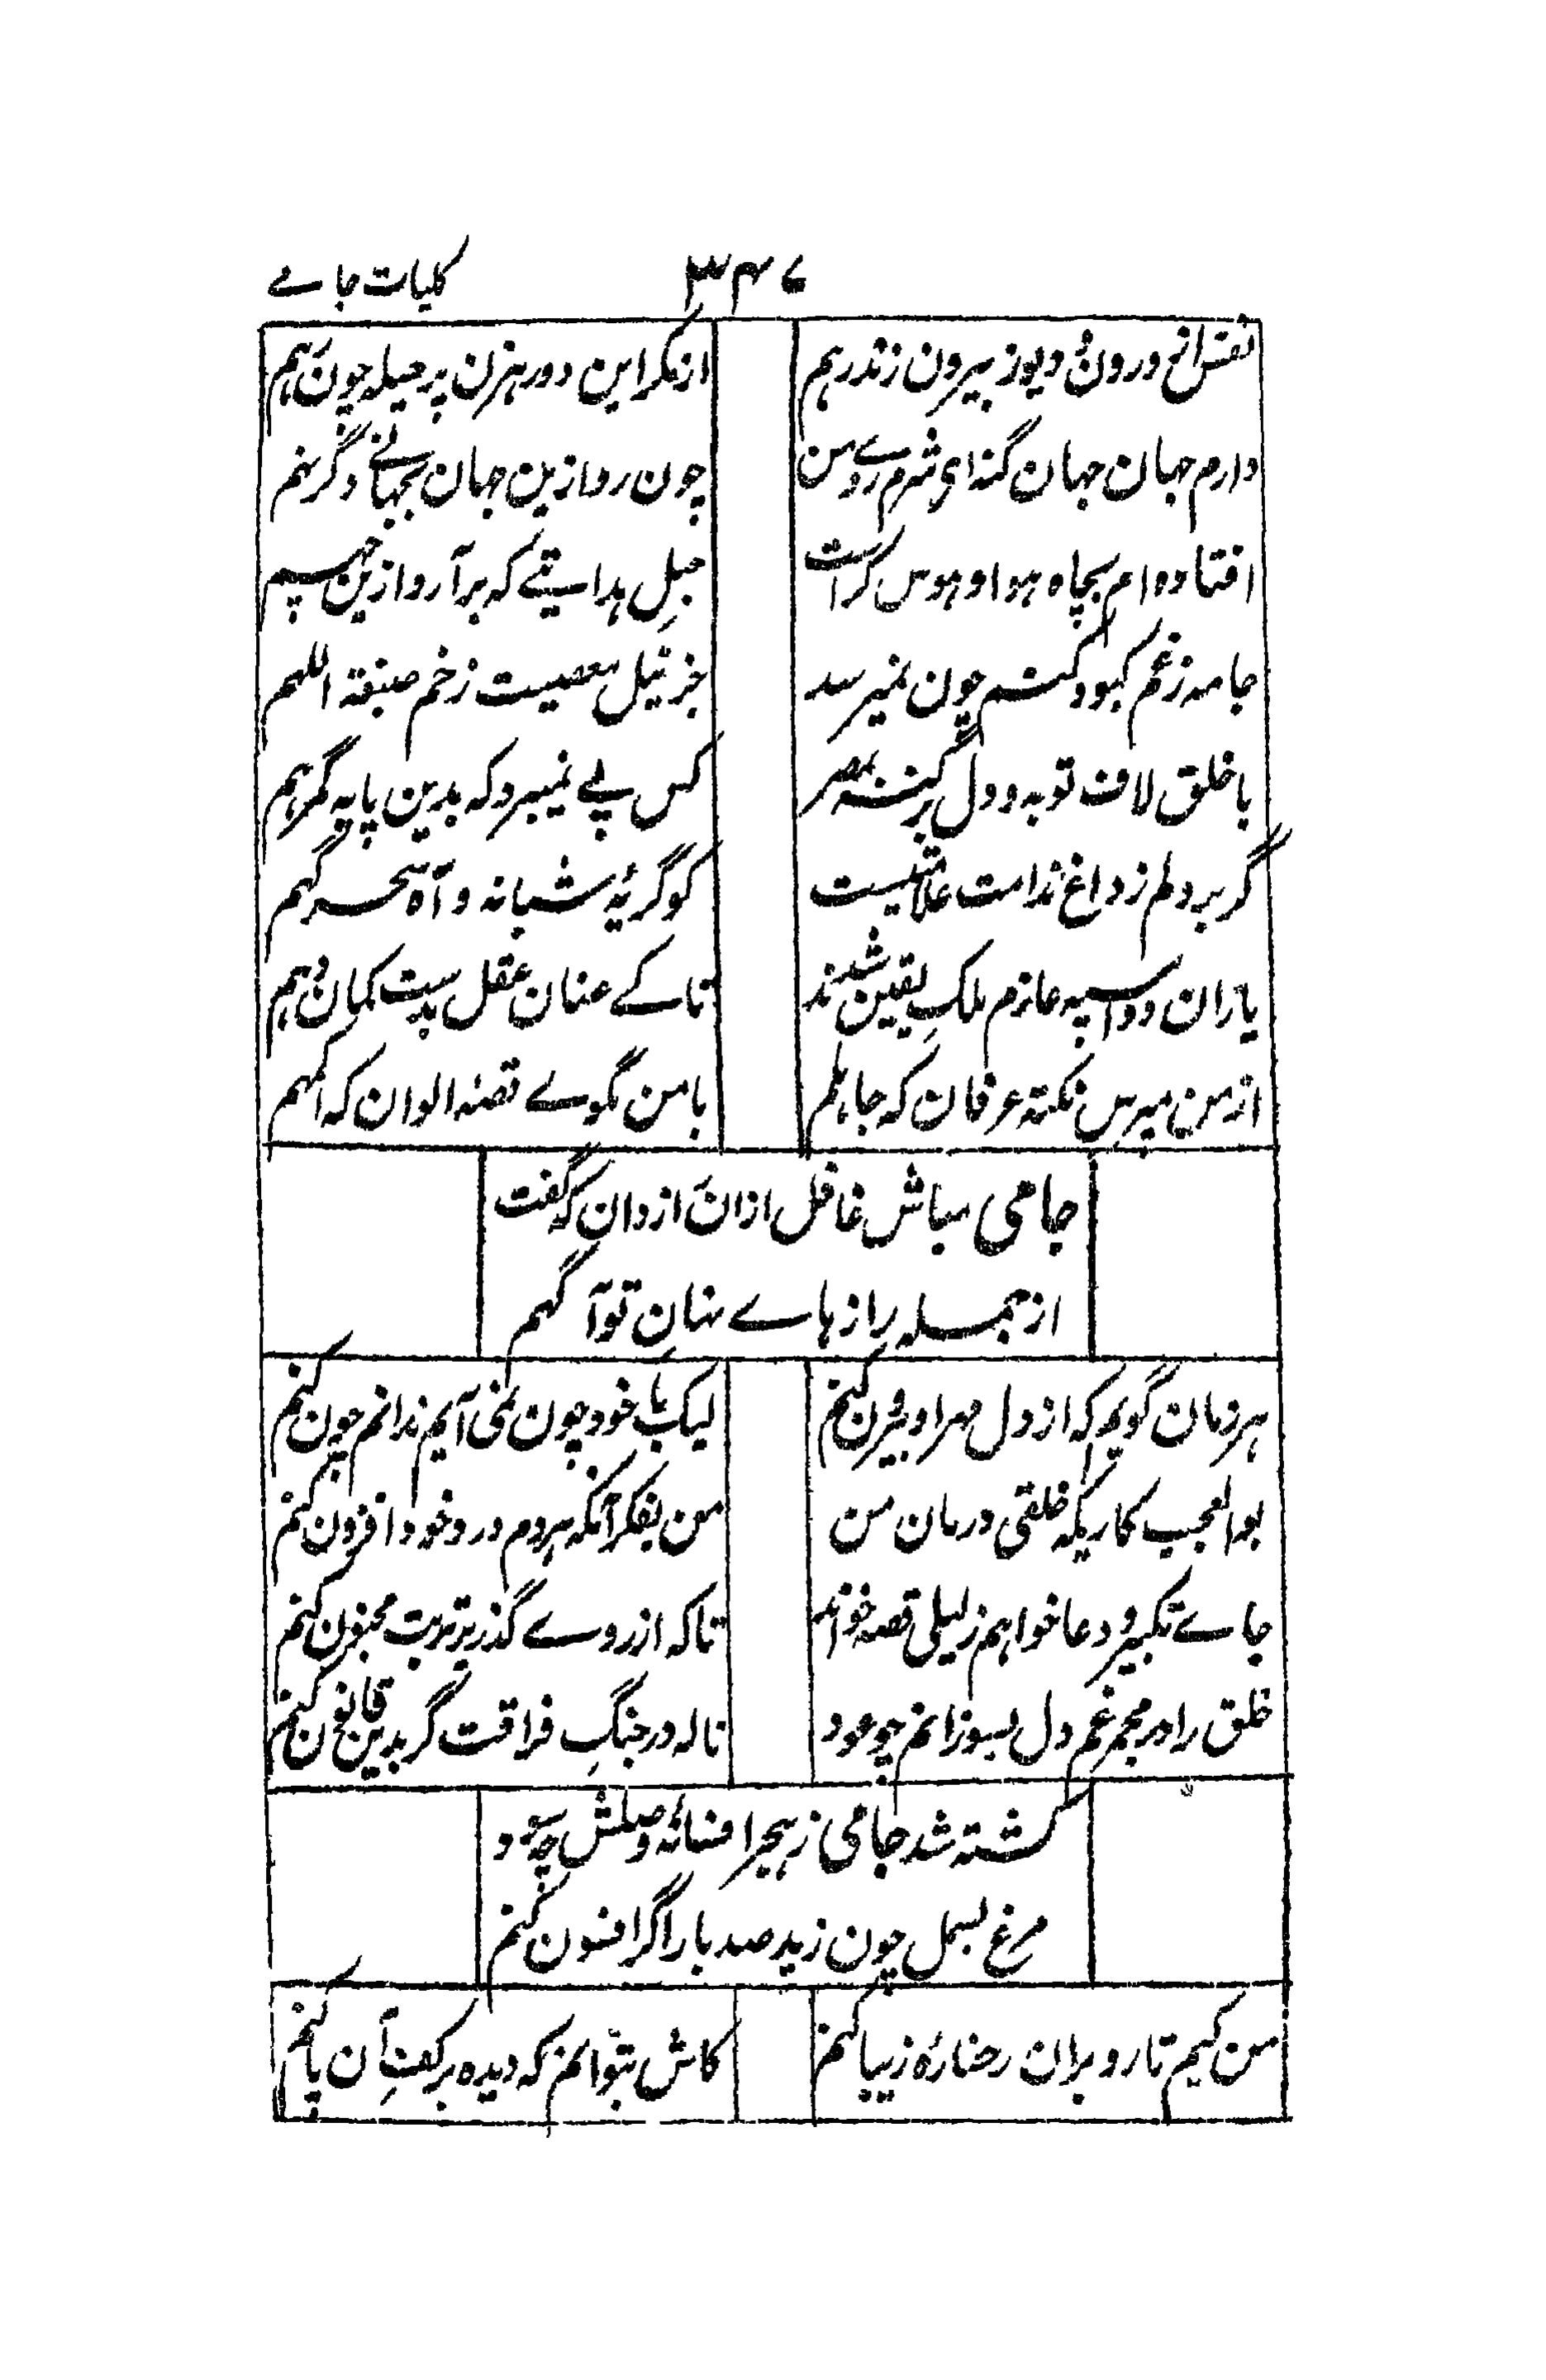 کلیات جامے ۳۴۷
نفس از درون و دیو ز بیرون زند رهم از مکر این دو رهزن پر حیله چون رهم
دارم جهان جهان گنه ای شرم روے من چون رو ازین جهان بجهانے دگر نهم
افتاده ام بچاه هوا و هوس کراست حبلِ هدایتے که برآرد ازین چهم
جامه ز غم کبود کنم چون نمیرسد جز نیل معصیت ز خم صبغة اللهم
با خلق لاف توبه و دل بر گنه مصر کس پے نمیبرد که بدین پایه گمرهم
گر بر دلم ز داغ ندامت علامتیست کو گریۂ شبانه و آه سحرگهم
یاران دواسپه عازم ملکِ یقین شدند تا کے عنان عقل بدست گمان دهم
از من مپرس نکتۂ عرفان که جاهلم با من مگوے قصۂ الوان که اکمهم
جامی مباش غافل ازان رازدان که گفت
از جمله رازهاے نهان تو آگهم
هر زمان گویم که از دل مهر او بیرون کنم لیک با خود چون نمی آیم ندانم چون کنم
بوالعجب کاریکه خلقی در غم درمان من من بفکر آنکه هر دم درد خود افزون کنم
جاے تکبیر و دعا خواهم ز لیلی قصه خواند تا که از روے گذر بر تربت مجنون کنم
خلق را در مجمر غم دل بسوزانم چو عود ناله در چنگِ فراقت گر بدین قانون کنم
کشته شد جامی ز هجر افسانۂ وصلش چه سود
مرغ بسمل چون زید صد بار اگر افسون کنم
من کیم تا رو بران رخسارۂ زیبا کنم کاش بتوانم که دیده بر کفِ آن پا کنم